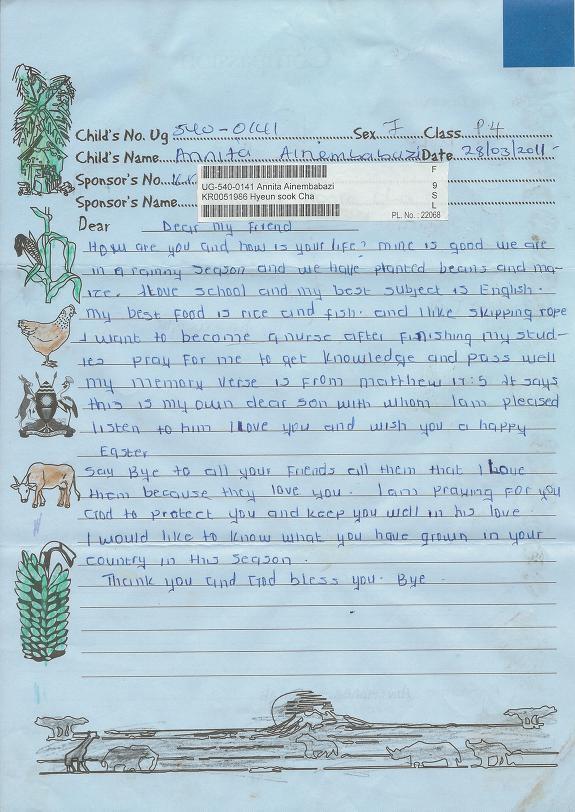 Child's No. Ug 540-0141 Sex F Class P.4
Child's Name Annita Ainembabazi Date 28/03/2011-
Sponsor's No.
UG-540-0141 Annita Ainembabazi
KR0051986 Hyeun sook Cha
F
9
S
L
PL. No. : 22068
Sponsor's Name
Dear Dear my Friend
How are you and how is your life? mine is good we are
in a rainny season and we have planted beans and ma-
ize. I love school and my best subject is English.
my best food is rice and fish. and I like skipping rope
I want to become a nurse after finishing my stud-
ies pray for me to get knowledge and pass well
my memory verse is from matthew 17:5 It says
this is my own dear son with whom Iam pleased
listen to him I love you and wish you a happy
Easter
say Bye to all your Friends all them that I Love
them because they love you. Iam praying for you
God to protect you and keep you well in his love.
I would like to know what you have grown in your
country in this season.
Thank you and God bless you. Bye